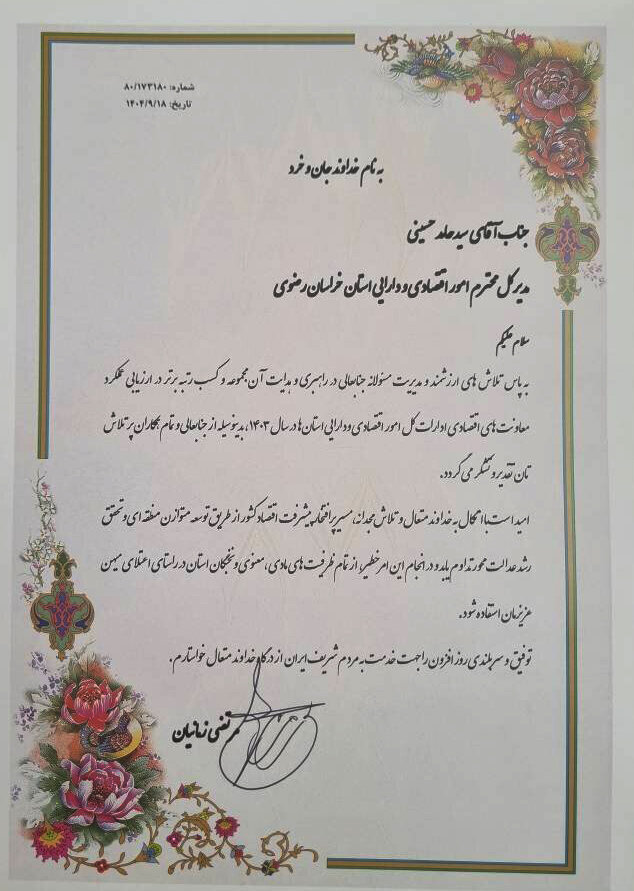 شماره: ۸۰/۱۷۳۱۸۰
تاریخ: ۱۴۰۴/۹/۱۸
به نام خداوند جان و خرد
جناب آقای سید حامد حسینی
مدیر کل محترم امور اقتصادی و دارایی استان خراسان رضوی
سلام علیکم
به پاس تلاش های ارزشمند و مدیریت مسئولانه جنابعالی در راهبری و هدایت آن مجموعه و کسب رتبه برتر در ارزیابی عملکرد
معاونت های اقتصادی ادارات کل امور اقتصادی و دارایی استان ها در سال ۱۴۰۳، بدینوسیله از جنابعالی و تمام همکاران پر تلاش
تان تقدیر و تشکر می گردد.
امید است با اتکال به خداوند متعال و تلاش مجدانه، مسیر پرافتخار پیشرفت اقتصاد کشور از طریق توسعه متوازن منطقه ای و تحقق
رشد عدالت محور تداوم یابد و در انجام این امر خطیر، از تمام ظرفیت های مادی، معنوی و نخبگان استان در راستای اعتلای میهن
عزیزمان استفاده شود.
توفیق و سربلندی روز افزون را جهت خدمت به مردم شریف ایران از درگاه خداوند متعال خواستارم.
مرتضی زمانیان